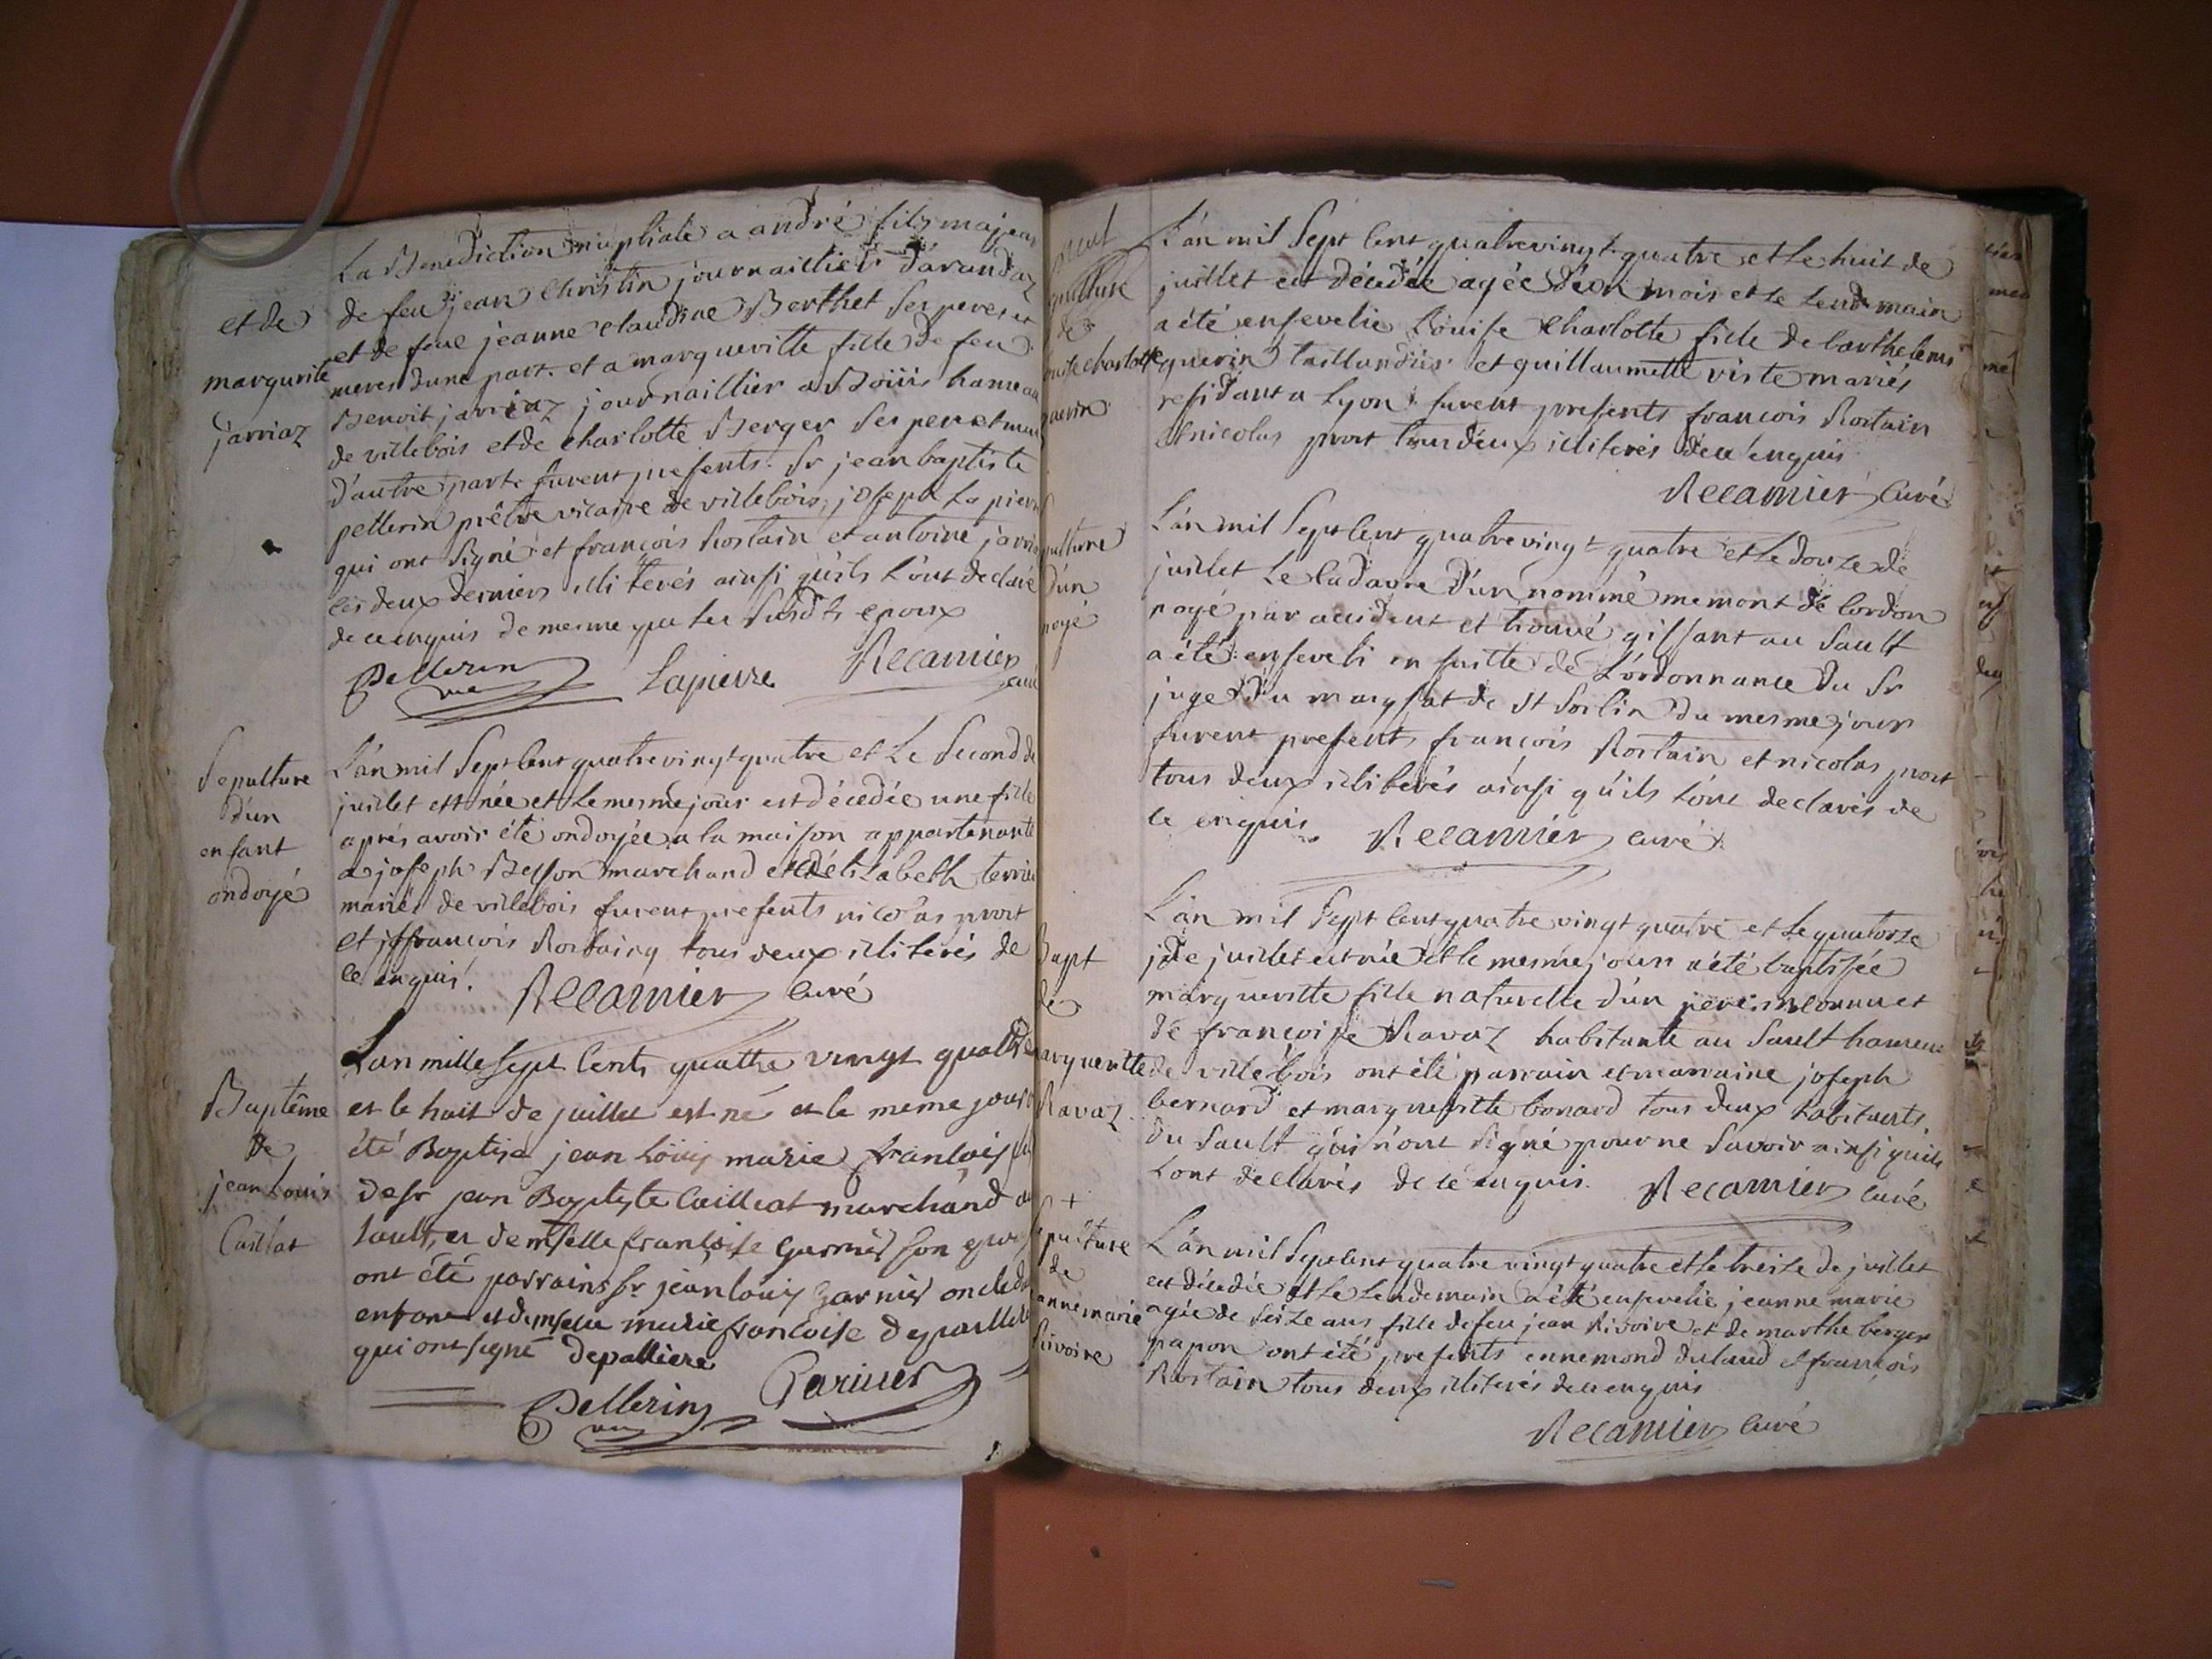 et de
margurite
jarriaz
La Benediction nuptiale a andré fils majeur
de feu jean Christin journaillier d'arandaz
et de feue jeanne claudine Berthet ses peres et
meres dune part. et a margueritte fille de feu
Benoit jarriaz journaillier a Boüis hameau
de villebois et de charlotte Berger ses pere et mere
d'autre part furent presents. Sr jean baptiste
pellerin prêtre vicaire de villebois, joseph La pierre
qui ont signé et françois Rostain et antoine jarria
les deux derniers illiterés ainsi qu'ils l'ont declaré
de ce enquis de mesme que les susdts epoux
Pellerin Lapierre Recamier
vic curé
Sepulture
d'un
enfant
ondoyé
L'an mil sept cent quatrevingt quatre et Le second de
juillet est née et le mesme jour est décedée une fille
aprés avoir été ondoyée a la maison appartenante
a joseph Besson marchand et d'élizabeth terrier
mariés de villebois furent presents nicolas prost
et françois Rostaing tous deux illiterés de
ce enquis. Recamier curé
Baptême
de
jean Louis
Caillat
L'an mille sept cents quattre vingt quattre
et le huit de juillet est né et le meme jour a
été Baptisé jean Loüis marie françois fils
de sr jean Baptiste Cailliat marchand au
Sault, et demselle françoise Garnier son epouse
ont été parrains Sr jean louis Garnier oncle de
enfant et demselle marie francoise depalliere
qui ont signé Depalliere
Pellerin Garnier
vic
Sepulture
de
Louise charlotte
guerin
L'an mil sept cent quatrevingt quatre et le huit de
juillet est décedée agée d'un mois et le lendemain
a été ensevelie Louise Charlotte fille de barthelemi
guerin taillandier et guillaumette viste mariés
residant a Lyon furent presents francois Rostain
et nicolas prost tous deux illiterés de ce enquis
Recamier curé
Sepulture
d'un
noyé
L'an mil sept cent quatrevingt quatre et le douze de
juillet Le Cadavre d'un nommé memont de Cordon
noyé par accident et trouvé gissant au Sault
a été enseveli en suitte de L'ordonnance du Sr
juge du marqsat de St Sorlin du mesme jour
furent presents françois Rostain et nicolas prost
tous deux illiterés ainsi qu'ils l'ont declarés de
ce enquis Recamier curé
Bapt
de
Margueritte
Ravaz
L'an mil sept cent quatre vingt quatre et le quatorze
de juillet est née et le mesme jour a été baptisée
margueritte fille naturelle d'un pere inconnu et
de françoise Ravaz habitante au Sault hameau
de villebois ont été parrain et marraine joseph
bernard et margueritte bonard tous deux habitants
du Sault qui n'ont signé pour ne savoir ainsi qu'ils
l'ont declarés de ce enquis. Recamier curé
+
Sepulture
de
jeanne marie
Rivoire
L'an mil sept cent quatre vingt quatre et le treize de juillet
est décedée et le lendemain a été ensevelie jeanne marie
agée de seize ans fille de feu jean Rivoire et de marthe berger
papon ont été presents ennemond dulaud et françois
Rostain tous deux illiterés de ce enquis
Recamier curé